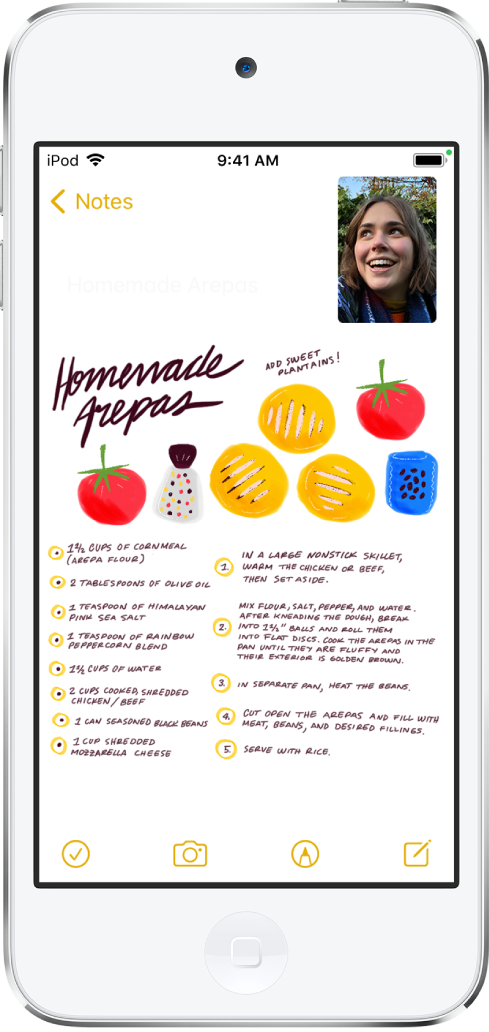 iPod 9:41 AM
Notes
Homemade Arepas
Homemade
Arepas
ADD SWEET
PLANTAINS!
1 1/2 CUPS OF CORNMEAL
(AREPA FLOUR)
2 TABLESPOONS OF OLIVE OIL
1 TEASPOON OF HIMALAYAN
PINK SEA SALT
1 TEASPOON OF RAINBOW
PEPPERCORN BLEND
1 1/2 CUPS OF WATER
2 CUPS COOKED, SHREDDED
CHICKEN/BEEF
1 CAN SEASONED BLACK BEANS
1 CUP SHREDDED
MOZZARELLA CHEESE
1. IN A LARGE NONSTICK SKILLET,
WARM THE CHICKEN OR BEEF,
THEN SET ASIDE.
2. MIX FLOUR, SALT, PEPPER, AND WATER.
AFTER KNEADING THE DOUGH, BREAK
INTO 1 1/2" BALLS AND ROLL THEM
INTO FLAT DISCS. COOK THE AREPAS IN THE
PAN UNTIL THEY ARE FLUFFY AND
THEIR EXTERIOR IS GOLDEN BROWN.
3. IN SEPARATE PAN, HEAT THE BEANS.
4. CUT OPEN THE AREPAS AND FILL WITH
MEAT, BEANS, AND DESIRED FILLINGS.
5. SERVE WITH RICE.